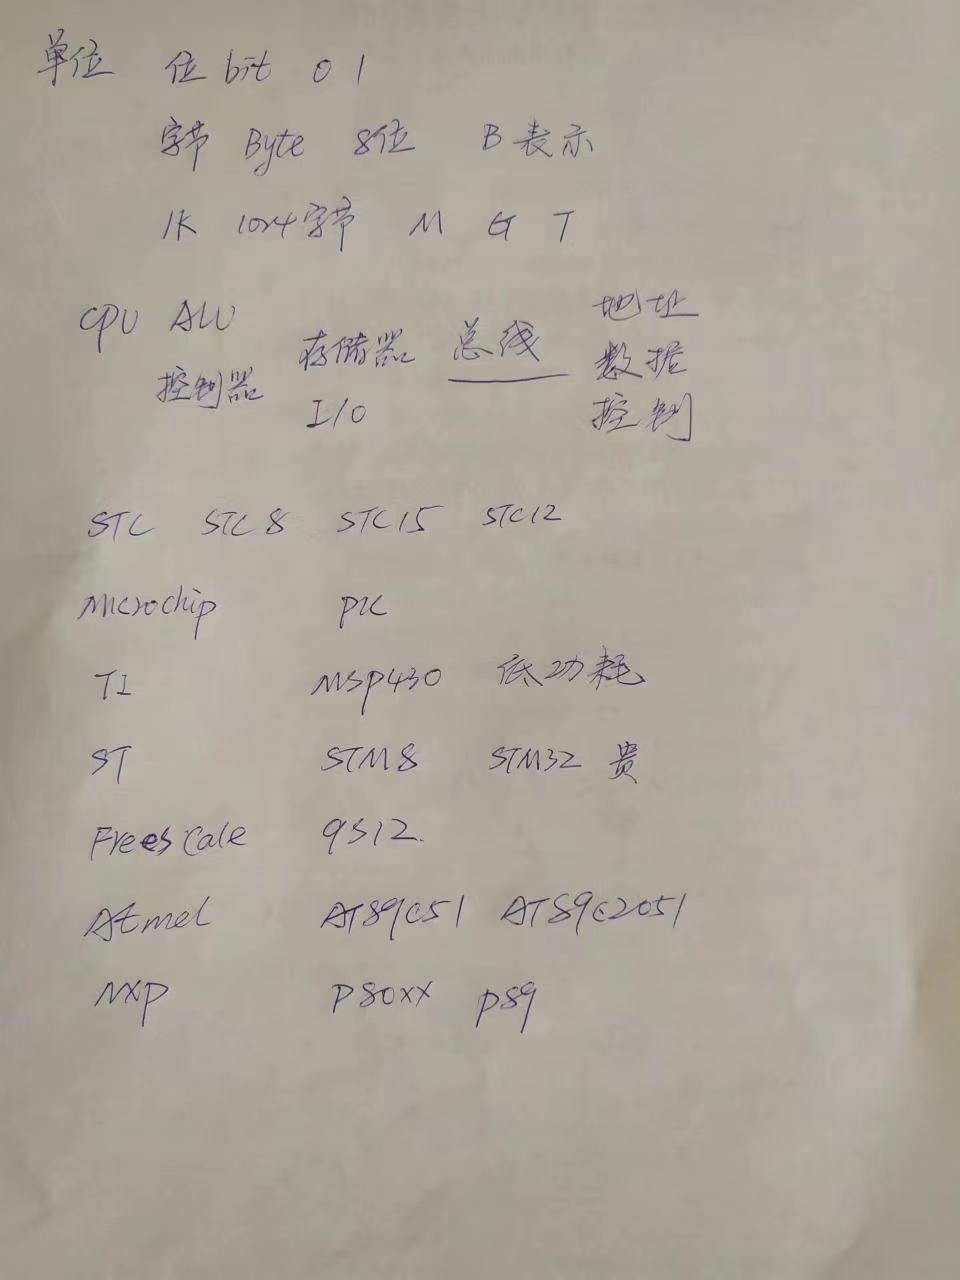 单位 位 bit 0 1
字节 Byte 8位 B 表示
1K 1024字节 M G T
CPU ALU 存储器 总线 地址
控制器 I/O 数据
控制
STC STC8 STC15 STC12
Microchip PIC
TI MSP430 低功耗
ST STM8 STM32 贵
Freescale 9S12.
Atmel AT89C51 AT89C2051
NXP P80XX P89